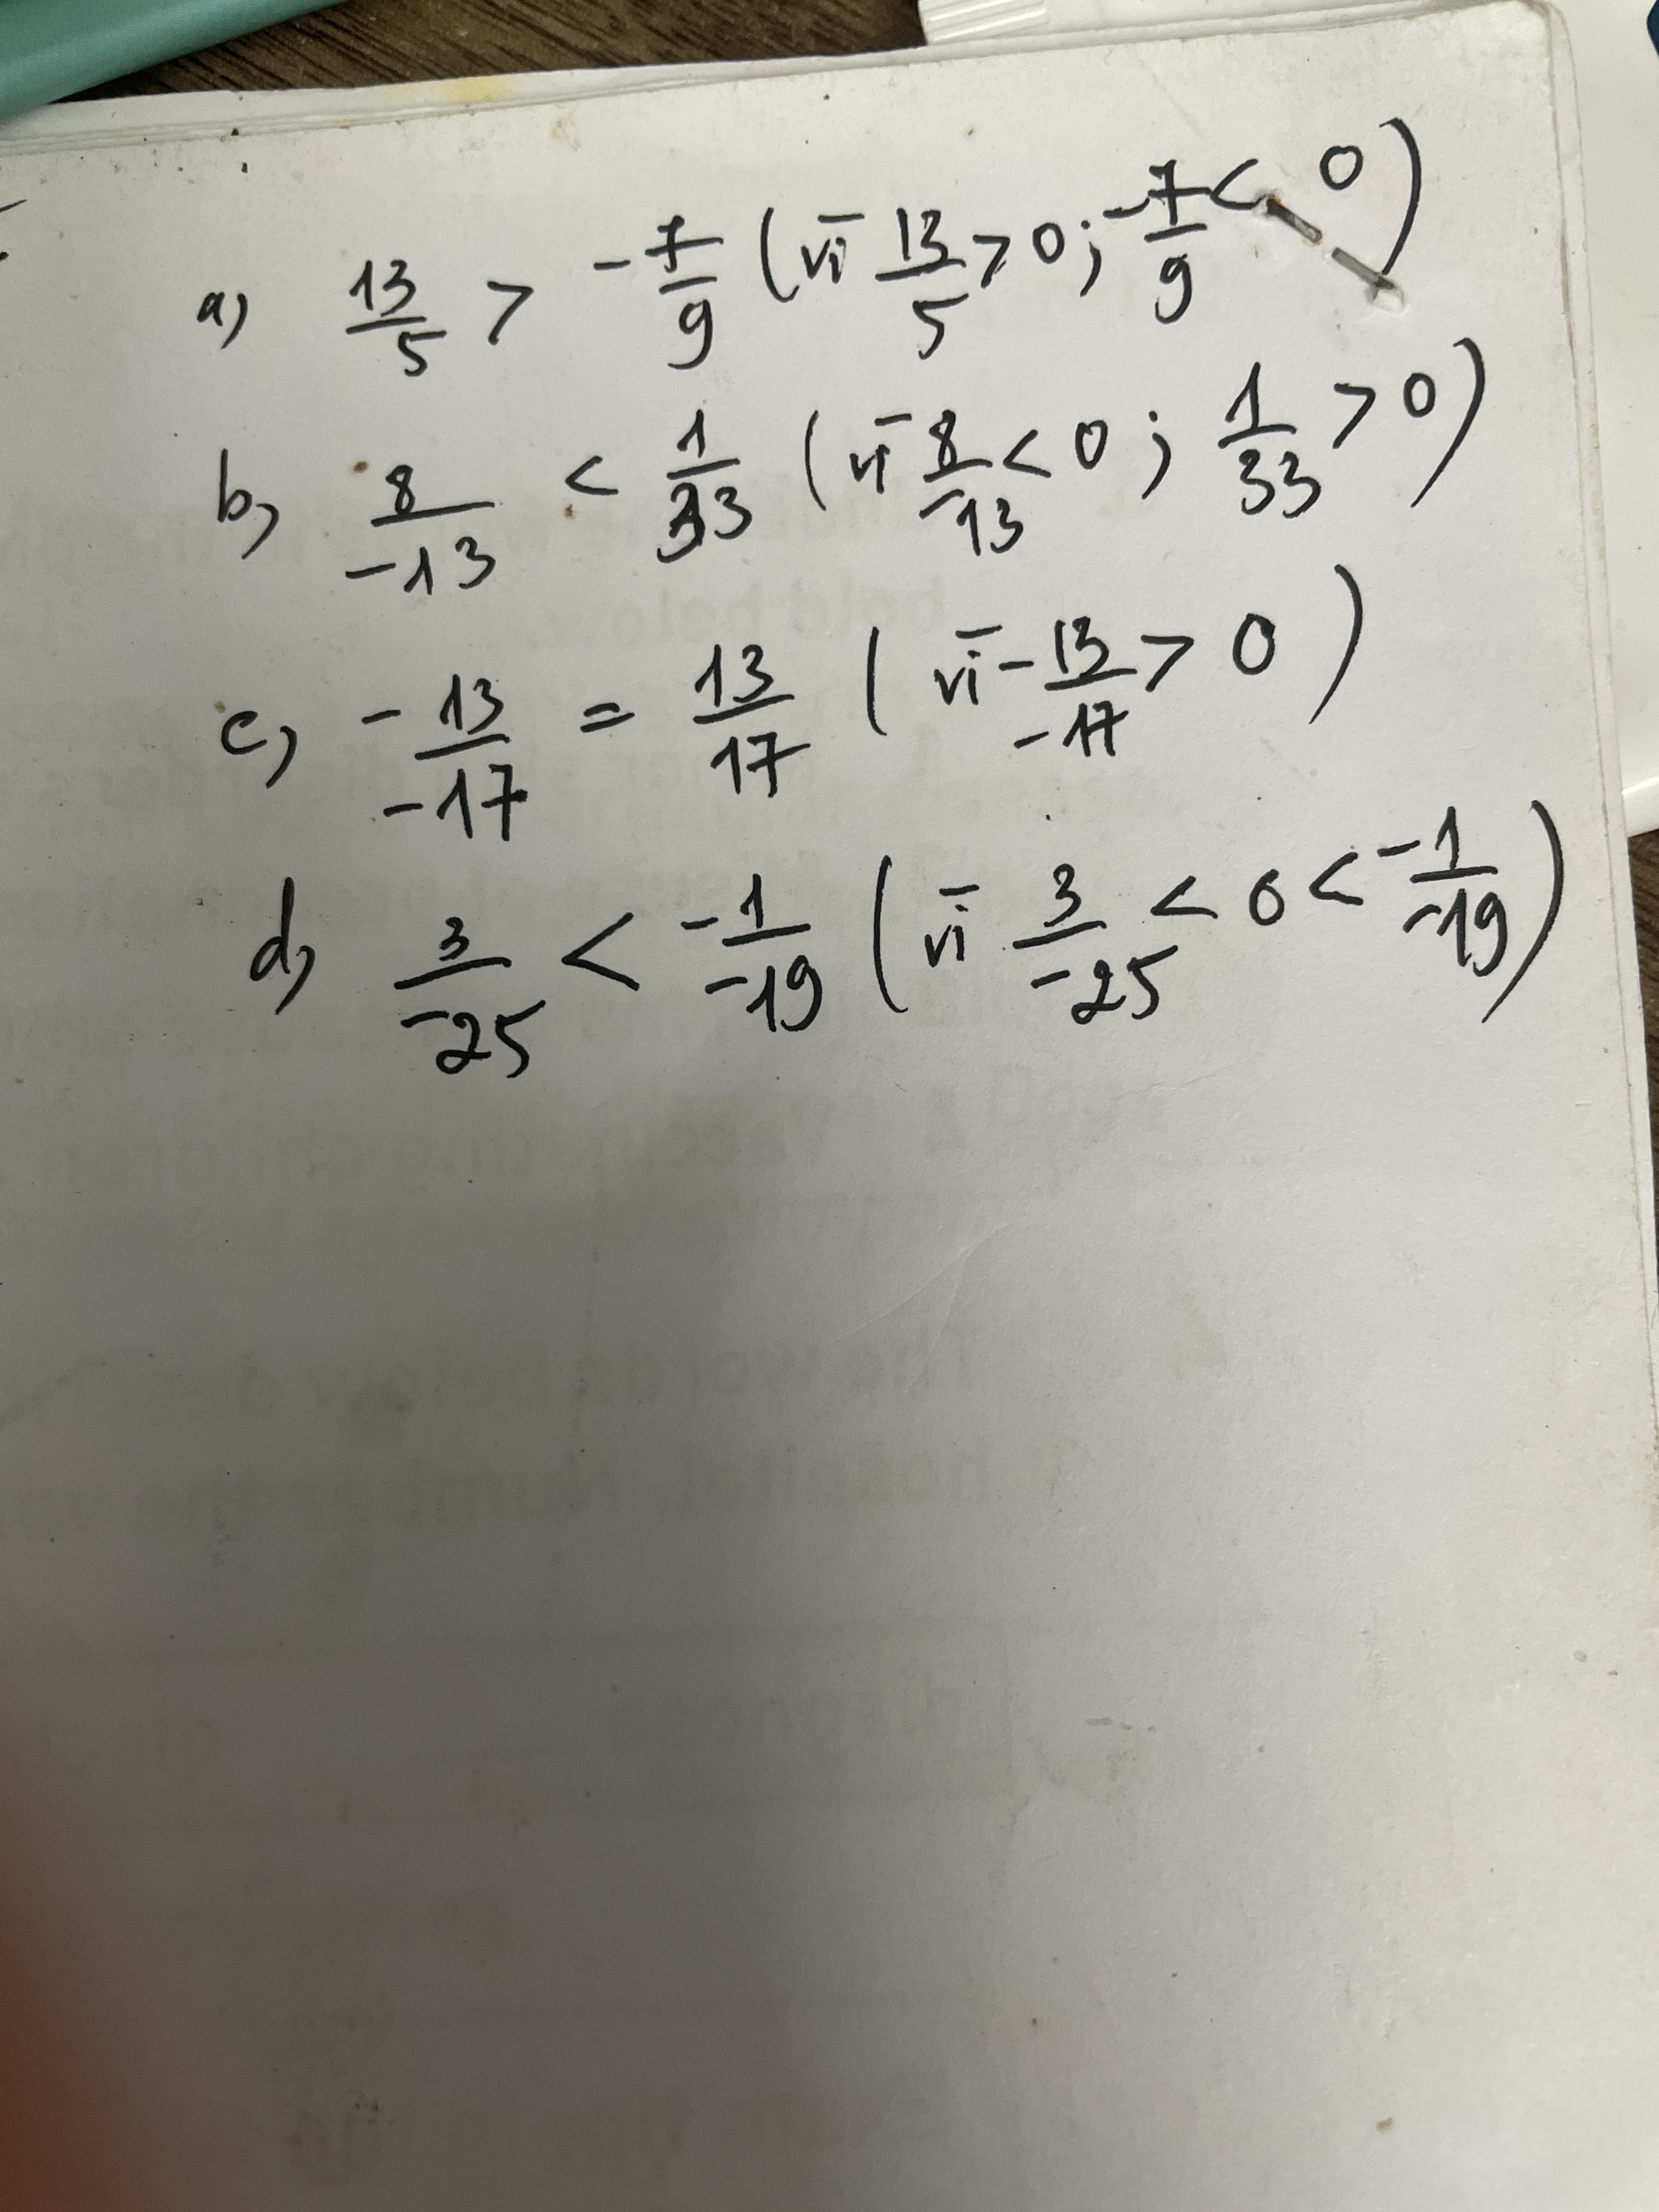 a) 13/5 > -7/9 (vì 13/5 > 0 ; -7/9 < 0)
b) 8/-13 < 1/33 (vì 8/-13 < 0 ; 1/33 > 0)
c) -13/-17 = 13/17 (vì -13/-17 > 0)
d) 3/-25 < -1/-19 (vì 3/-25 < 0 < -1/-19)